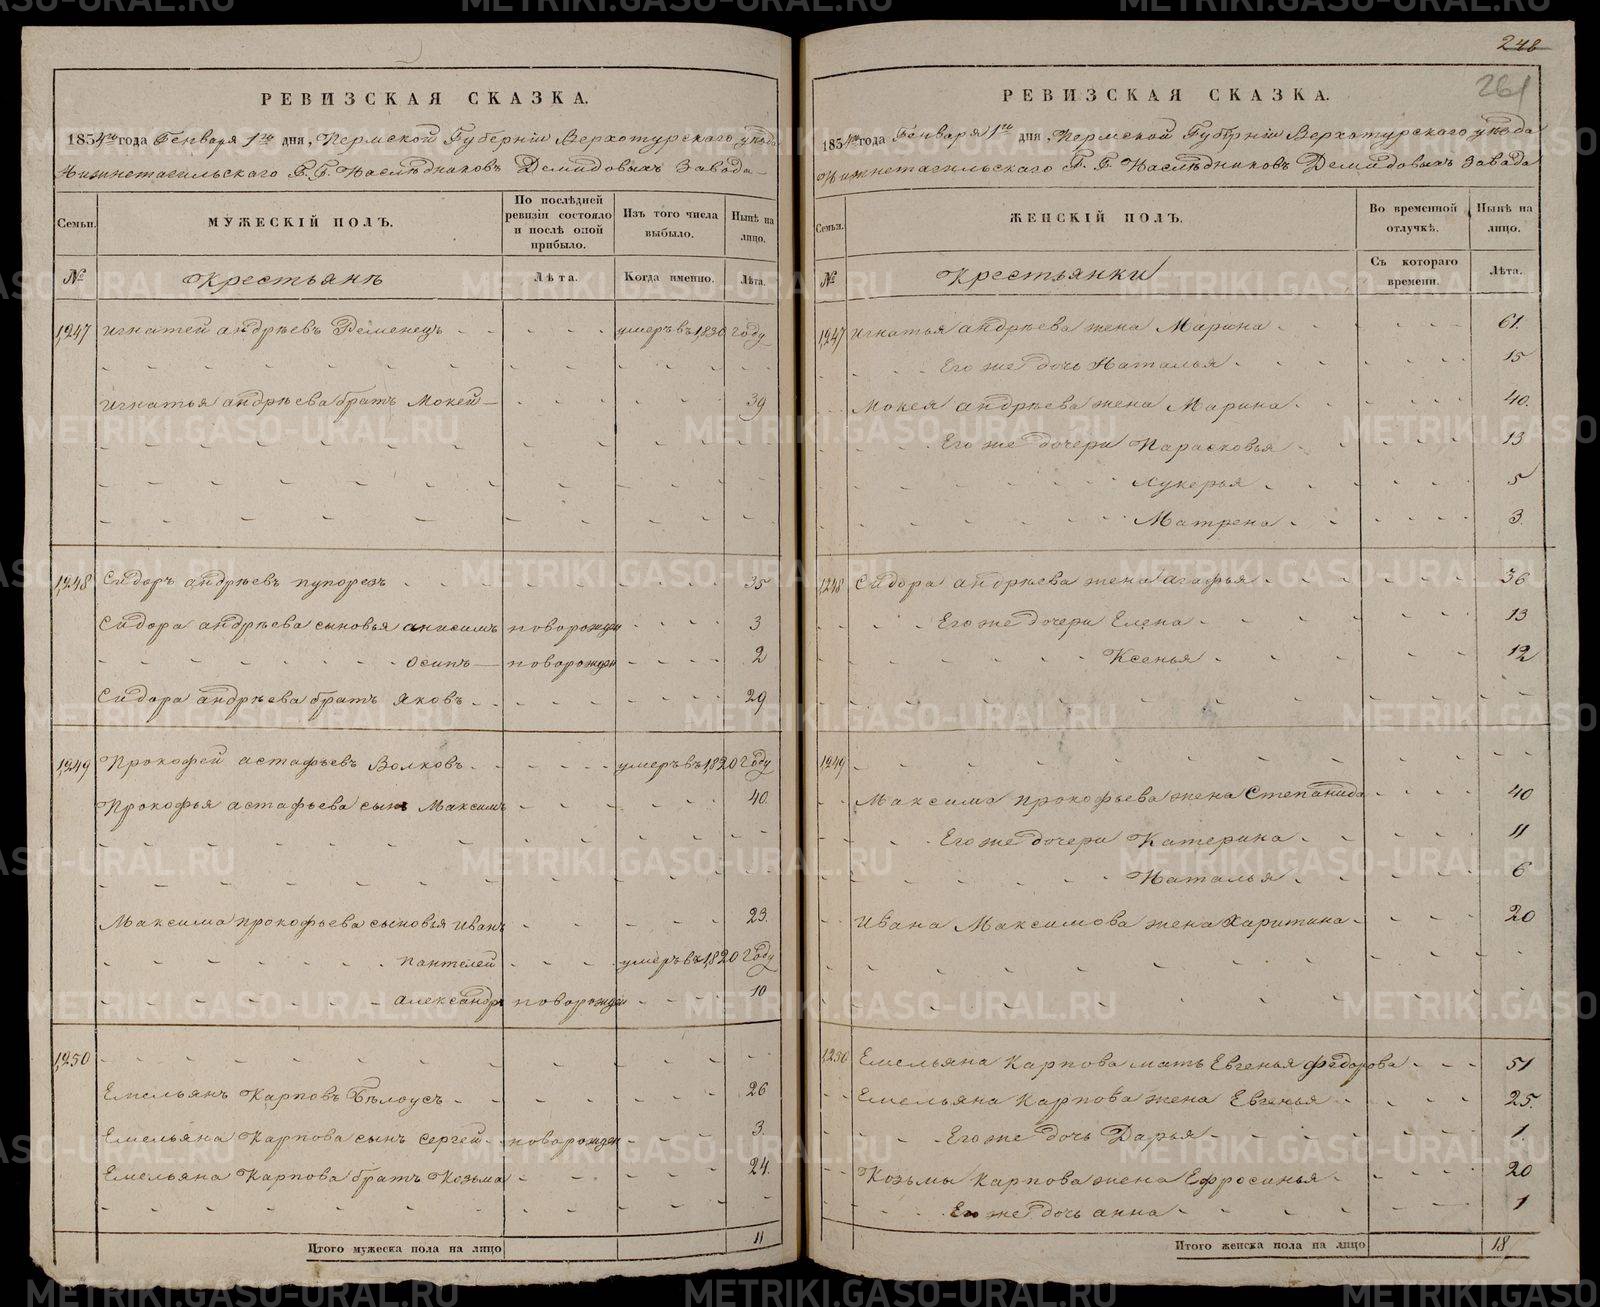 248
261
РЕВИЗСКАЯ СКАЗКА.
1854го года Генваря 1го дня, Пермской Губерніи Верхотурскаго уѣзда
Нижнетагильскаго Г.Г. Наслѣдниковъ Демидовыхъ Завода
Семьи. МУЖЕСКІЙ ПОЛЪ. По послѣдней ревизіи состояло и послѣ оной прибыло. Изъ того числа выбыло. Нынѣ на лицо.
№ Крестьянъ Лѣта. Когда именно. Лѣта.
1247 Игнатей андрѣевъ умеръ въ 1830 году
Игнатья андрѣева братъ Мокей 39
1248 Сидоръ андрѣевъ пупорезъ 35
Сидора андрѣева сыновья анисимъ новорожден 3
Осипъ новорожден 2
Сидора андрѣева братъ Яковъ 29
1249 Прокофей астафьевъ Волковъ умеръ въ 1820 Году
Прокофья астафьева сынъ Максимъ 40.
Максима прокофьева сыновья Иванъ 23.
Пантелей умеръ въ 1820 Году
александръ новорожден 10
1250
Емельянъ Карповъ Бѣлоусъ 26
Емельяна Карпова сынъ Сергей новорожден 3.
Емельяна Карпова братъ Козьма 24.
Итого мужеска пола на лицо 11
РЕВИЗСКАЯ СКАЗКА.
1854го года Генваря 1го дня, Пермской Губерніи Верхотурскаго уѣзда
Нижнетагильскаго Г.Г. Наслѣдниковъ Демидовыхъ Завода
Семьи. ЖЕНСКІЙ ПОЛЪ. Во временной отлучкѣ. Нынѣ на лицо.
№ Крестьянки Съ котораго времени. Лѣта.
1247 Игнатья андрѣева жена Марина 61.
Его же дочь Наталья 15
Мокея андрѣева жена Марина 40.
Его же дочери Парасковья 13
Лукерья 5
Матрена 3.
1248 Сидора андрѣева жена агафья 36
Его же дочери Елена 13
Ксенья 12
1249
Максима прокофьева жена Степанида 40
Его же дочери Катерина 11
Наталья 6
Ивана Максимова жена Харитина 20
1250 Емельяна Карпова мать Евгенья федорова 51
Емельяна Карпова жена Евгенья 25.
Его же дочь Дарья 1.
Козьмы Карпова жена Ефросинья 20
Его же дочь анна 1
Итого женска пола на лицо 18
METRIKI.GASO-URAL.RU